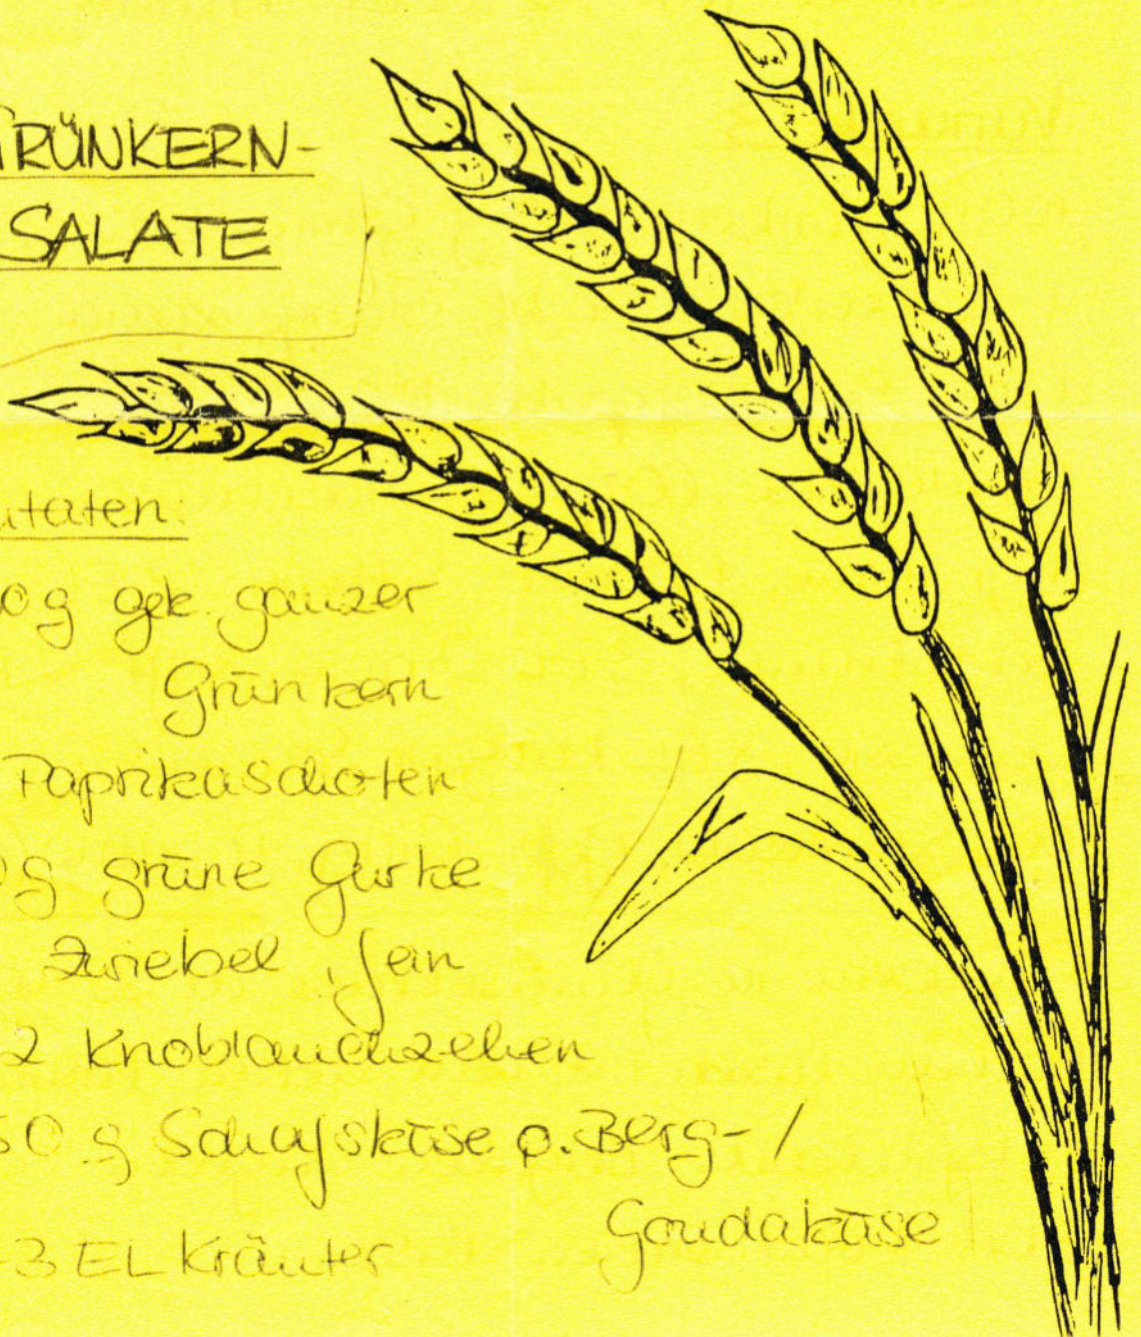 GRÜNKERN-
SALATE
utaten:
0g gek. ganzer
Grünkern
Paprikaschoten
0g grüne Gurke
Zwiebel, fein
2 Knoblauchzehen
50 g Schafskäse o. Berg-/
Goudakäse
-3 EL Kräuter